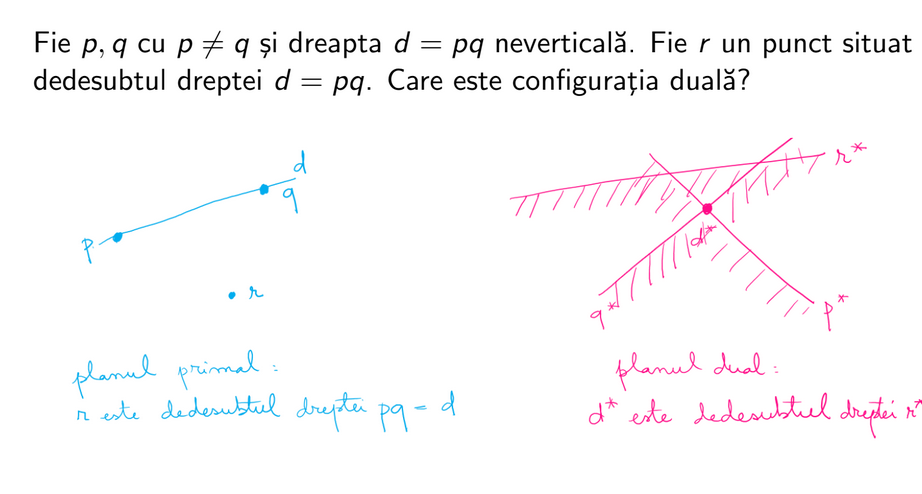 Fie p, q cu p ≠ q și dreapta d = pq neverticală. Fie r un punct situat
dedesubtul dreptei d = pq. Care este configurația duală?
d
q
p
r
r*
d*
q*
p*
planul primal :
r este dedesubtul dreptei pq = d
planul dual :
d* este dedesubtul dreptei r*